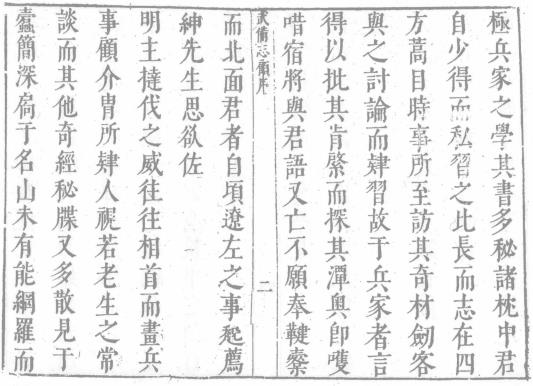 極兵家之學其書多秘諸枕中君
自少得而私習之比長而志在四
方蒿目時事所至訪其奇材劍客
與之討論而肄習故于兵家者言
得以批其肯綮而探其潭奧卽嚄
唶宿將與君語又亡不願奉鞬櫜
武備志顧序
二
而北面君者自頃遼左之事起薦
紳先生思欲佐
明主撻伐之威往往相首而畫兵
事顧介冑所肄人視若老生之常
談而其他奇經秘牒又多散見于
蠹簡深扃于名山未有能網羅而